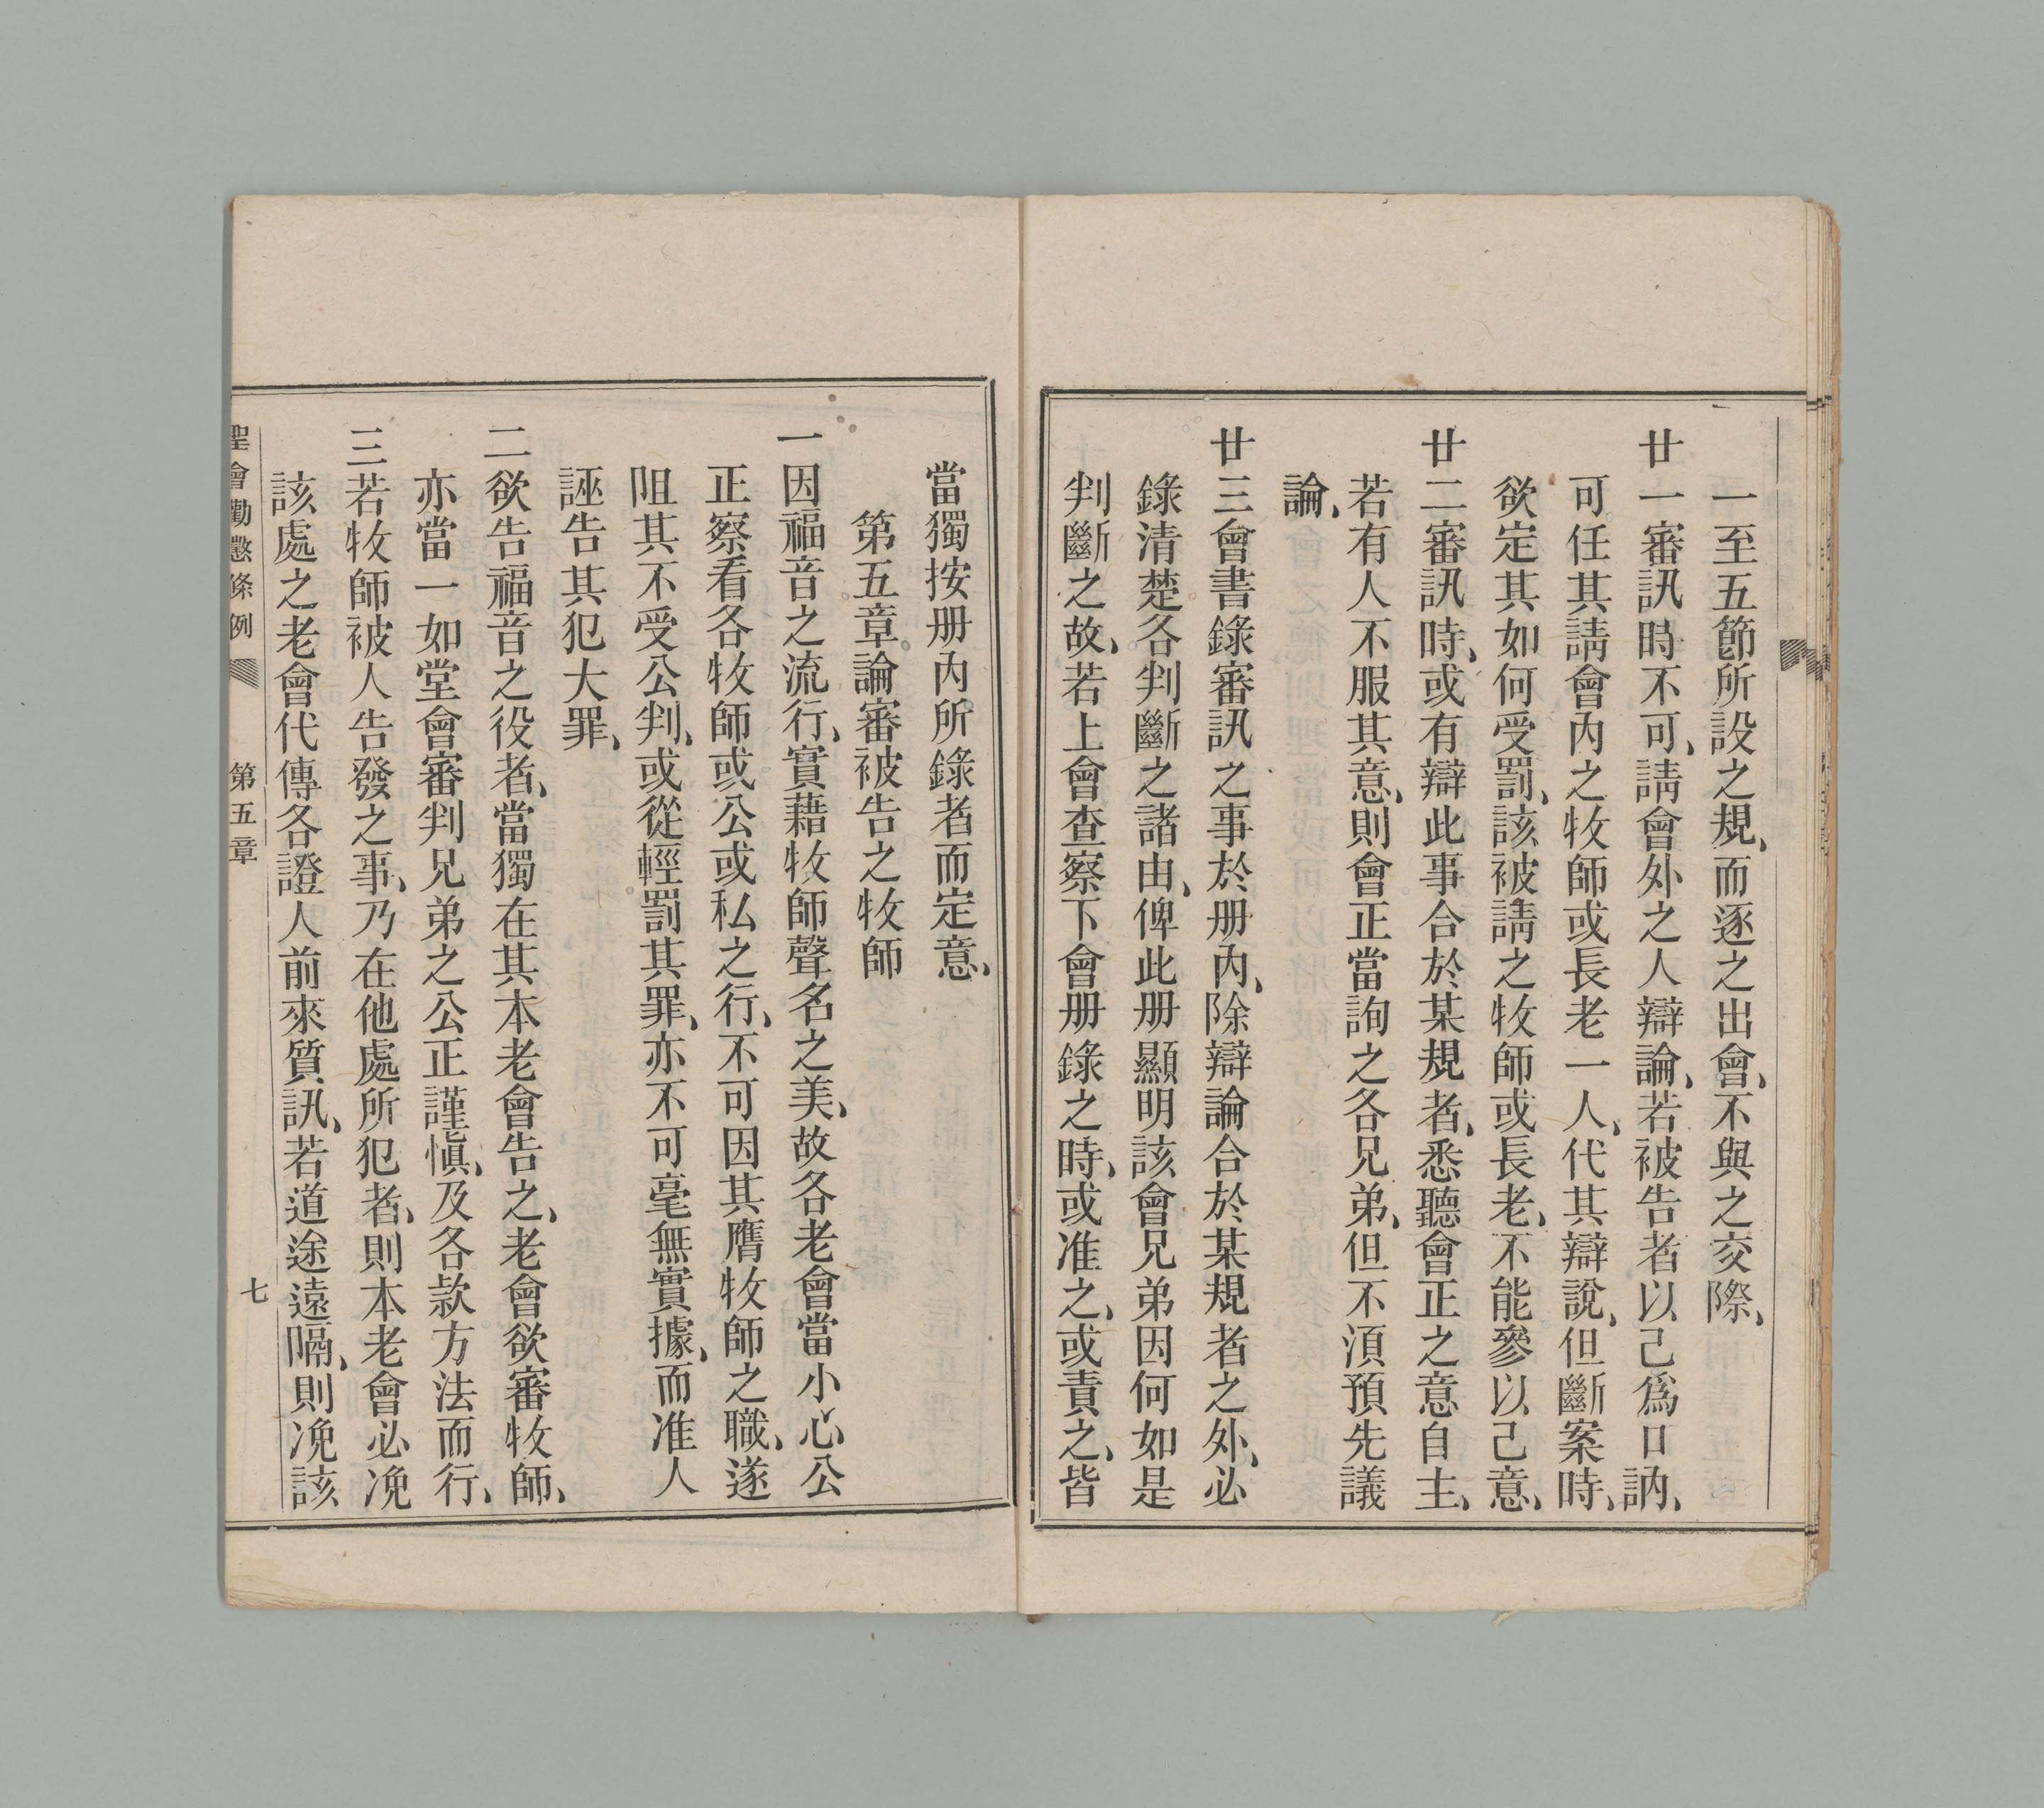 一至五節所設之規、而逐之出會、不與之交際、
廿一審訊時不可、請會外之人辯論、若被告者以己爲口訥、
可任其請會內之牧師或長老一人、代其辯說、但斷案時、
欲定其如何受罰、該被請之牧師或長老、不能參以己意、
廿二審訊時、或有辯此事合於某規者、悉聽會正之意自主、
若有人不服其意、則會正當詢之各兄弟、但不湏預先議
論、
廿三會書錄審訊之事於册內、除辯論合於某規者之外、必
錄清楚各判斷之諸由、俾此册顯明該會兄弟因何如是
判斷之故、若上會查察下會册錄之時、或准之、或責之、皆
當獨按册內所錄者而定意、
第五章論審被告之牧師
一因福音之流行、實藉牧師聲名之美、故各老會當小心、公
正察看各牧師或公或私之行、不可因其膺牧師之職、遂
阻其不受公判、或從輕罰其罪、亦不可毫無實據、而准人
誣告其犯大罪、
二欲告福音之役者、當獨在其本老會告之、老會欲審牧師、
亦當一如堂會審判兄弟之公正謹愼、及各款方法而行、
三若牧師被人告發之事、乃在他處所犯者、則本老會必凂
該處之老會代傳各證人前來質訊、若道途遠隔、則凂該
聖會勸懲條例 第五章 七